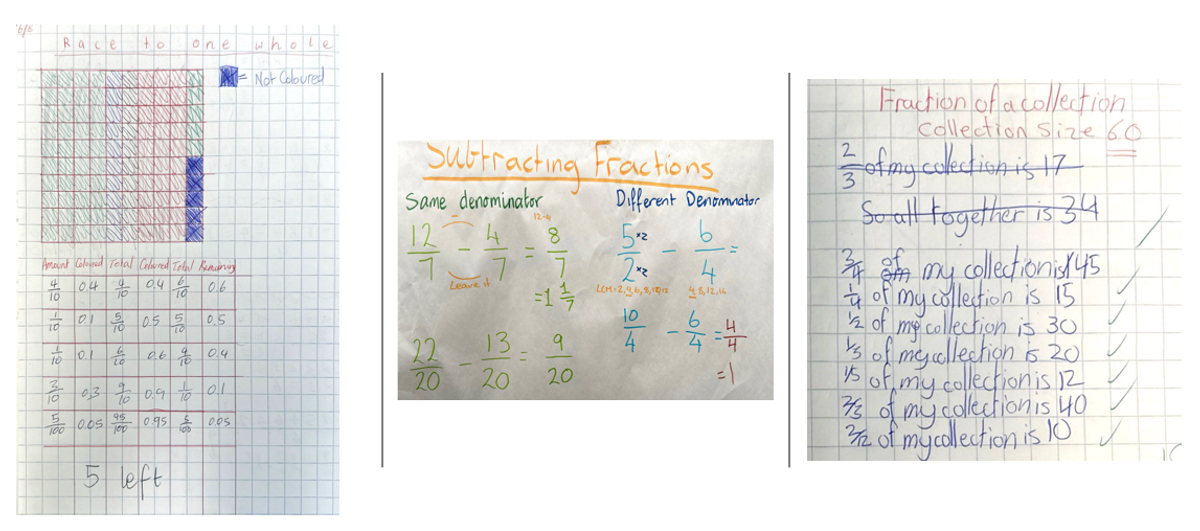 6/6
Race to one whole
= Not Coloured
Amount Coloured Total Coloured Total Remaining
4/10 0.4 4/10 0.4 6/10 0.6
1/10 0.1 5/10 0.5 5/10 0.5
1/10 0.1 6/10 0.6 4/10 0.4
3/10 0.3 9/10 0.9 1/10 0.1
5/100 0.05 95/100 0.95 5/100 0.05
5 left
Subtracting Fractions
Same denominator
12-4
12/7 - 4/7 = 8/7
Leave it
=1 1/7
22/20 - 13/20 = 9/20
Different Denominator
5×2/2×2 - 6/4 =
10/4 - 6/4 = 4/4
=1
Fraction of a collection
Collection Size 60
2/3 of my collection is 17
So all together is 34
3/4 of my collection is 45
1/4 of my collection is 15
1/2 of my collection is 30
1/3 of my collection is 20
1/5 of my collection is 12
2/3 of my collection is 40
2/12 of my collection is 10